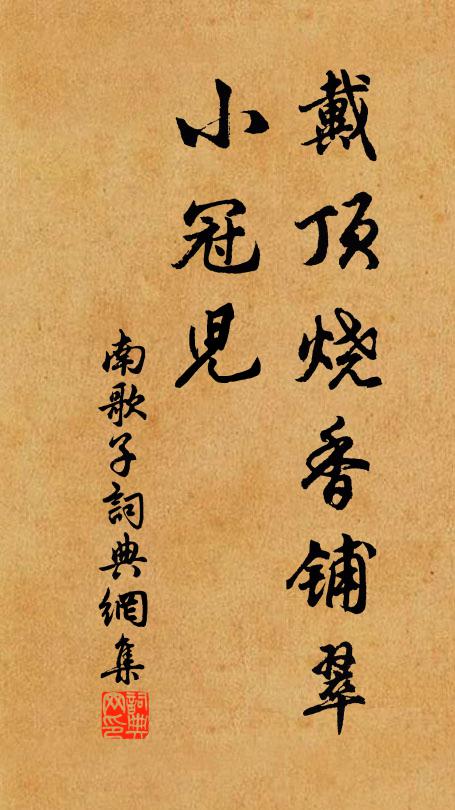 戴顶烧香铺翠
小冠児
南歌子詞典網集
詞典
网印